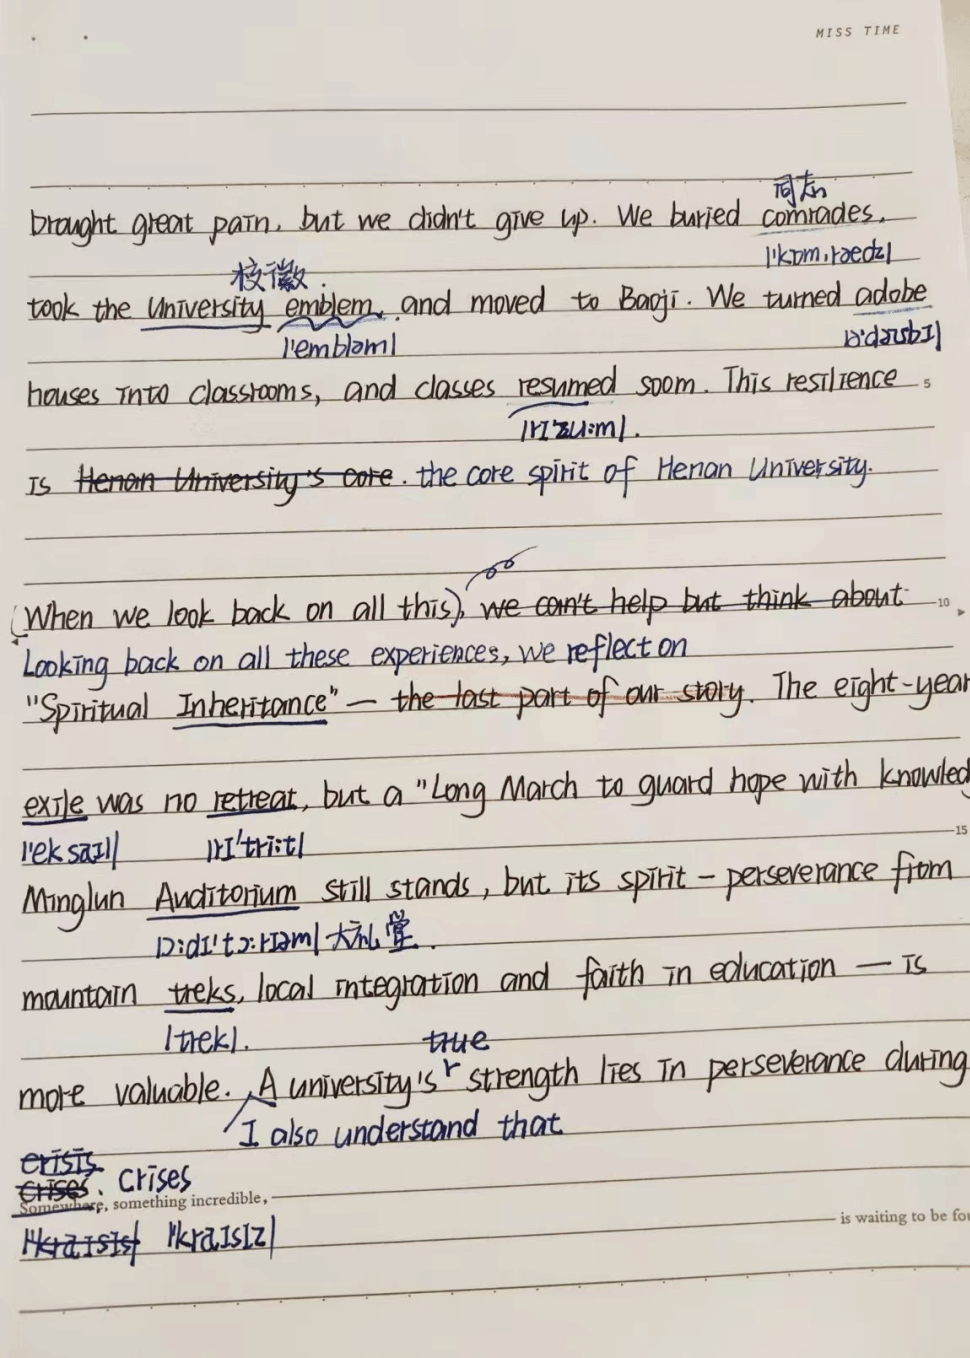 MISS TIME
同志
brought great pain, but we didn't give up. We buried comrades,
|'kɒm,rædz|
校徽.
took the University emblem, and moved to Baoji. We turned adobe
|'embləm|
houses into classrooms, and classes resumed soom. This resilience 5
|rɪ'zu:m|.
is Henan University's core. the core spirit of Henan University.
(When we look back on all this), we can't help but think about 10
Looking back on all these experiences, we reflect on
"Spiritual Inheritance" — the last part of our story. The eight-year
exile was no retreat, but a "Long March to guard hope with knowled
|'eksaɪl| |rɪ'tri:t|
15
Minglun Auditorium still stands, but its spirit – perseverance from
|ɔ:dɪ'tɔ:rɪəm| 大礼堂.
mountain treks, local integration and faith in education — is
|trek|.
true
more valuable. A university's strength lies in perseverance during
I also understand that
crisis
crises. crises
Somewhere, something incredible,
is waiting to be fou
|'kraɪsɪs| |'kraɪsɪz|